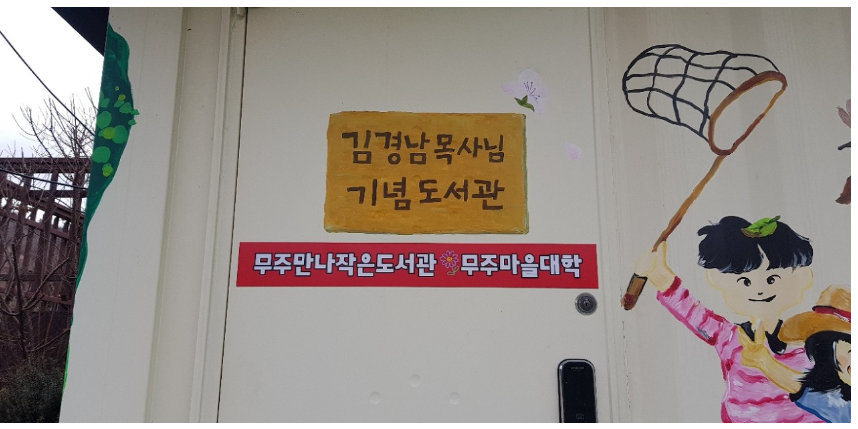 김경남목사님
기념도서관
무주만나작은도서관 무주마을대학